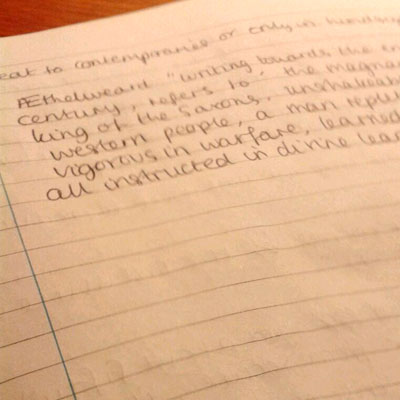 eat to contemporaries or only in hindsig
Æthelweard "writing towards the en
century, refers to, the magna
king of the Saxons, unshakeab
western people, a man replet
vigorous in warfare, learned
all instructed in divine lea